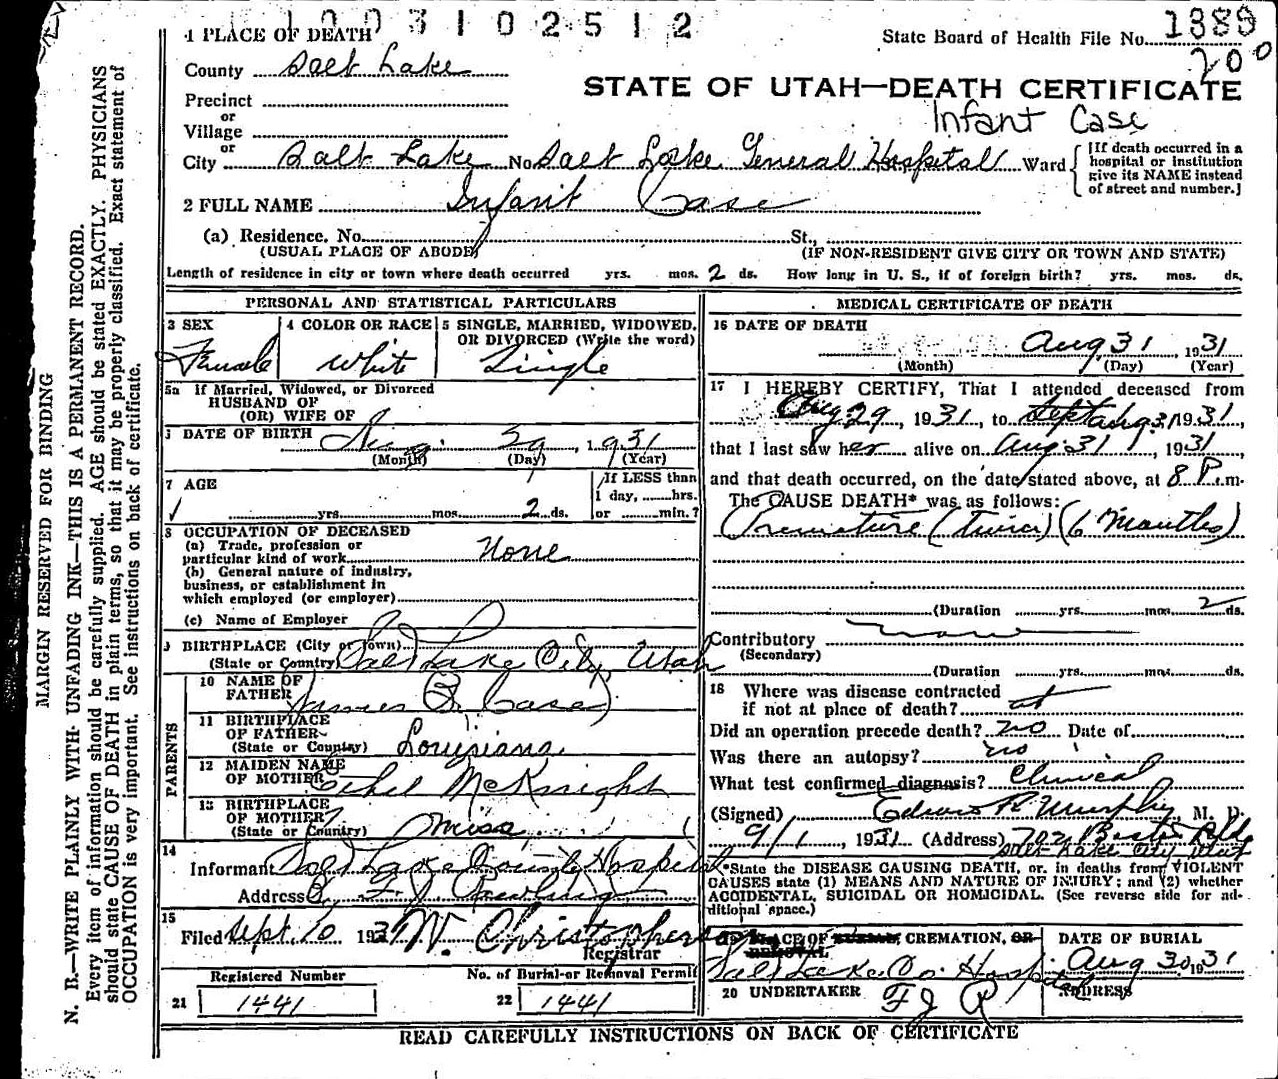 1 0 0 3 1 0 2 5 1 2
1 PLACE OF DEATH
State Board of Health File No. 1388
200
County Salt Lake
STATE OF UTAH—DEATH CERTIFICATE
Precinct
or
Infant Case
Village
or
City Salt Lake No. Salt Lake General Hospital Ward
[If death occurred in a hospital or institution give its NAME instead of street and number.]
2 FULL NAME Infant Case
(a) Residence. No. St.,
(USUAL PLACE OF ABODE) (IF NON-RESIDENT GIVE CITY OR TOWN AND STATE)
Length of residence in city or town where death occurred yrs. mos. 2 ds. How long in U. S., if of foreign birth? yrs. mos. ds.
PERSONAL AND STATISTICAL PARTICULARS
3 SEX
Female
4 COLOR OR RACE
White
5 SINGLE, MARRIED, WIDOWED,
OR DIVORCED (Write the word)
Single
5a If Married, Widowed, or Divorced
HUSBAND OF
(OR) WIFE OF
6 DATE OF BIRTH Aug. 29, 1931
(Month) (Day) (Year)
7 AGE
yrs. mos. 2 ds.
If LESS than
1 day, hrs.
or min.?
8 OCCUPATION OF DECEASED
(a) Trade, profession or
particular kind of work None
(b) General nature of industry,
business, or establishment in
which employed (or employer)
(c) Name of Employer
9 BIRTHPLACE (City or Town)
(State or Country) Salt Lake City, Utah
PARENTS
10 NAME OF
FATHER James Case
11 BIRTHPLACE
OF FATHER
(State or Country) Louisiana
12 MAIDEN NAME
OF MOTHER Ethel McKnight
13 BIRTHPLACE
OF MOTHER
(State or Country) Miss.
14
Informant Salt Lake County Hospital
Address
15
Filed Sept. 10 193 W. Christopherson
Registrar
Registered Number
21 1441
No. of Burial or Removal Permit
22 1441
MEDICAL CERTIFICATE OF DEATH
16 DATE OF DEATH
Aug 31, 1931
(Month) (Day) (Year)
17 I HEREBY CERTIFY, That I attended deceased from
Aug 29, 1931, to Sept Aug 31 1931,
that I last saw her alive on Aug 31, 1931,
and that death occurred, on the date stated above, at 8 P.m.
The CAUSE DEATH* was as follows:
Premature (twins) (6 Months)
(Duration yrs. mos. 2 ds.
Contributory none
(Secondary)
(Duration yrs. mos. ds.
18 Where was disease contracted
if not at place of death? at
Did an operation precede death? no Date of
Was there an autopsy? no
What test confirmed diagnosis? Clinical
(Signed) Edward R. Murphy, M. D.
9/1, 1931 (Address) 702 Boston Bldg
Salt Lake City Utah
*State the DISEASE CAUSING DEATH, or, in deaths from VIOLENT
CAUSES state (1) MEANS AND NATURE OF INJURY; and (2) whether
ACCIDENTAL, SUICIDAL OR HOMICIDAL. (See reverse side for ad-
ditional space.)
19 PLACE OF BURIAL, CREMATION, OR
REMOVAL
Salt Lake Co. Hospital
DATE OF BURIAL
Aug 30, 1931
20 UNDERTAKER F J R
ADDRESS
READ CAREFULLY INSTRUCTIONS ON BACK OF CERTIFICATE
MARGIN RESERVED FOR BINDING
N. B.—WRITE PLAINLY WITH UNFADING INK—THIS IS A PERMANENT RECORD.
Every item of information should be carefully supplied. AGE should be stated EXACTLY. PHYSICIANS
should state CAUSE OF DEATH in plain terms, so that it may be properly classified. Exact statement of
OCCUPATION is very important. See instructions on back of certificate.